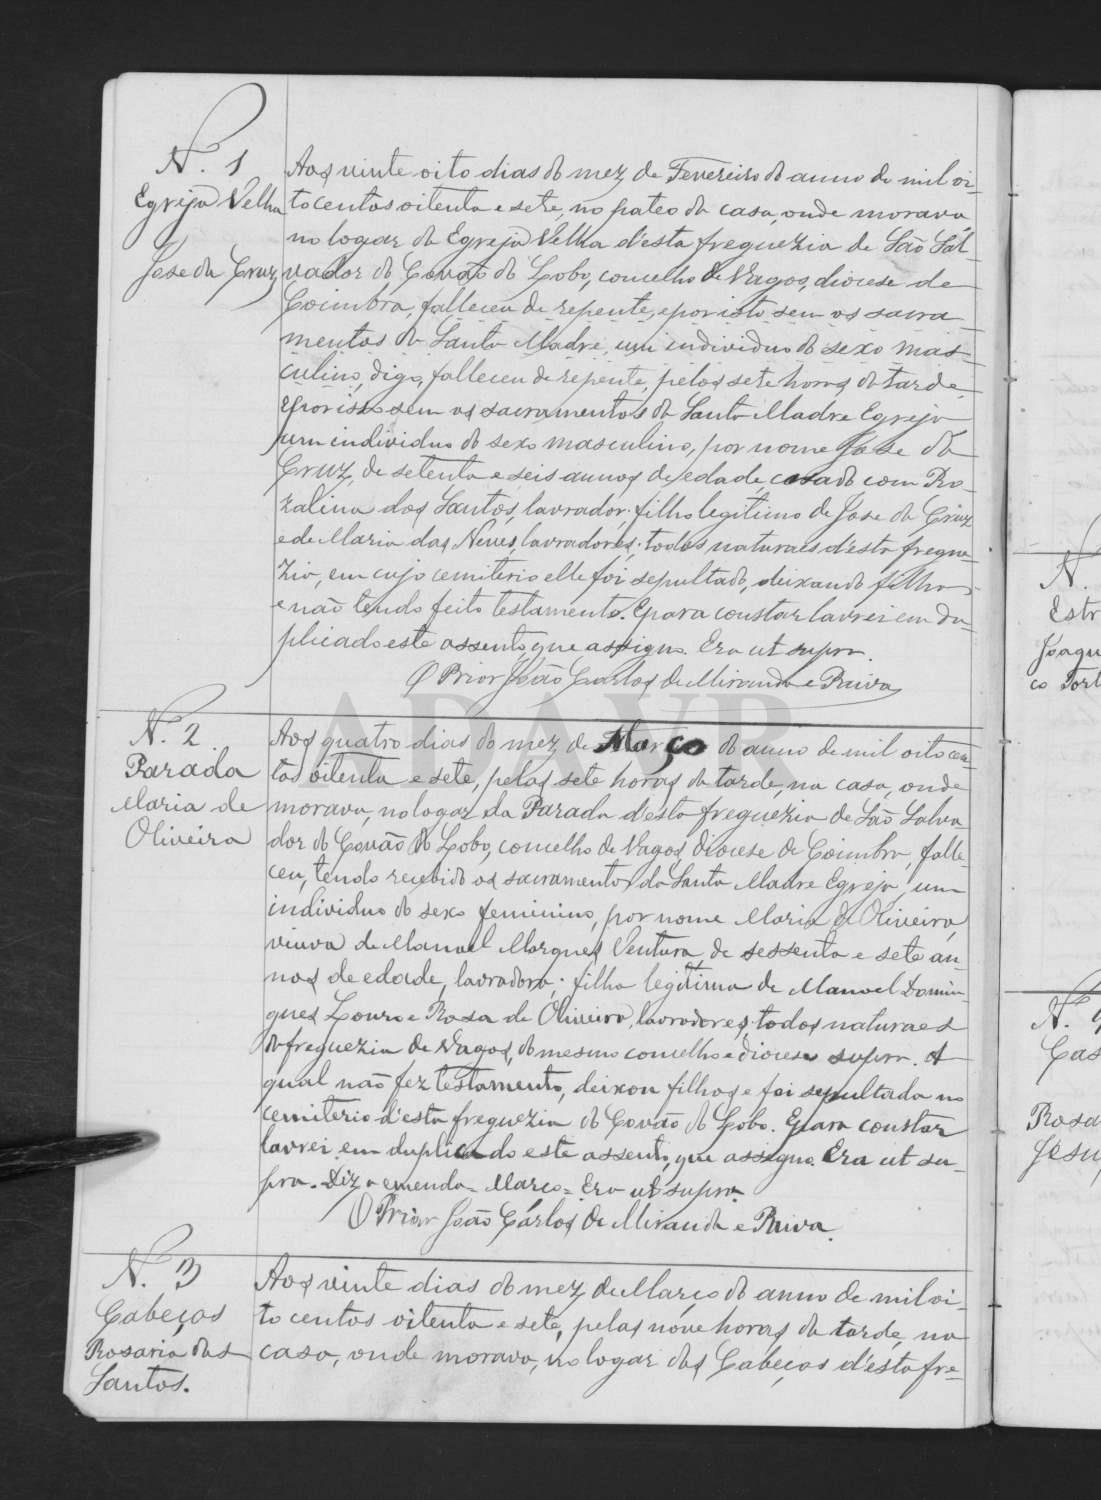 N. 1
Egreja Velha
José da Cruz
Aos vinte oito dias do mez de Fevereiro do anno de mil oi-
tocentos oitenta e sete, no pateo da casa, onde morava
no logar da Egreja Velha d'esta freguezia de São Sal-
vador do Covão do Lobo, concelho de Vagos, diocese de
Coimbra, falleceu de repente, e por isto sem os sacra-
mentos da Santa Madre, um individuo do sexo mas-
culino, digo, falleceu de repente, pelas sete horas da tarde,
e por isso sem os sacramentos da Santa Madre Egreja
um individuo do sexo masculino, por nome José da
Cruz, de setenta e seis annos de edade, casado com Ro-
zalina dos Santos, lavrador, filho legitimo de José da Cruz
e de Maria das Neves, lavradores; todos naturaes d'esta fregue-
zia, em cujo cemiterio elle foi sepultado, deixando filhos
e não tendo feito testamento. E para constar lavrei em du-
plicado este assento, que assigno. Era ut supra.
O Prior João Carlos de Miranda e Paiva
N. 2
Parada
Maria de
Oliveira
Aos quatro dias do mez de Março do anno de mil oitocen-
tos oitenta e sete, pelas sete horas da tarde, na casa, onde
morava, no logar da Parada d'esta freguezia de São Salva-
dor do Covão do Lobo, concelho de Vagos, diocese de Coimbra, falle-
ceu, tendo recebido os sacramentos da Santa Madre Egreja, um
individuo do sexo feminino, por nome Maria de Oliveira,
viuva de Manoel Marques Ventura, de sessenta e sete an-
nos de edade, lavradora; filha legitima de Manoel Domin-
gues Louro e Rosa de Oliveira, lavradores, todos naturaes
da freguezia de Vagos, do mesmo concelho e diocese supra. A
qual não fez testamento, deixou filhos e foi sepultada no
cemiterio d'esta freguezia do Covão do Lobo. E para constar
lavrei em duplicado este assento, que assigno. Era ut su-
pra. Diz a emenda = Março = Era ut supra.
O Prior João Cárlos de Miranda e Paiva.
N. 3
Cabeços
Rosaria dos
Santos.
Aos vinte dias do mez de Março do anno de mil oi-
to centos oitenta e sete, pelas nove horas da tarde, na
casa, onde morava, no logar dos Cabeços d'esta fre-
N.
Estr
Joaqu
co Tort
N. 
Cas
Rosa
Jesu
ADAVR